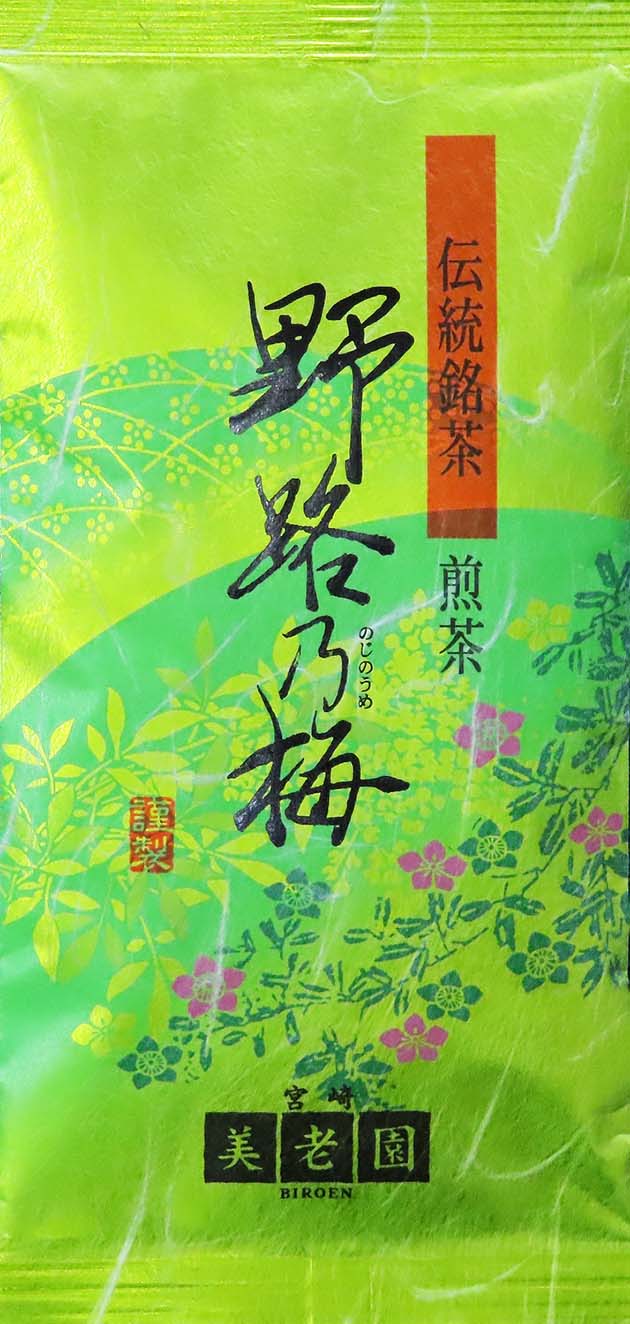 伝統銘茶 煎茶
野路乃梅
のじのうめ
謹製
宮崎
美老園
BIROEN